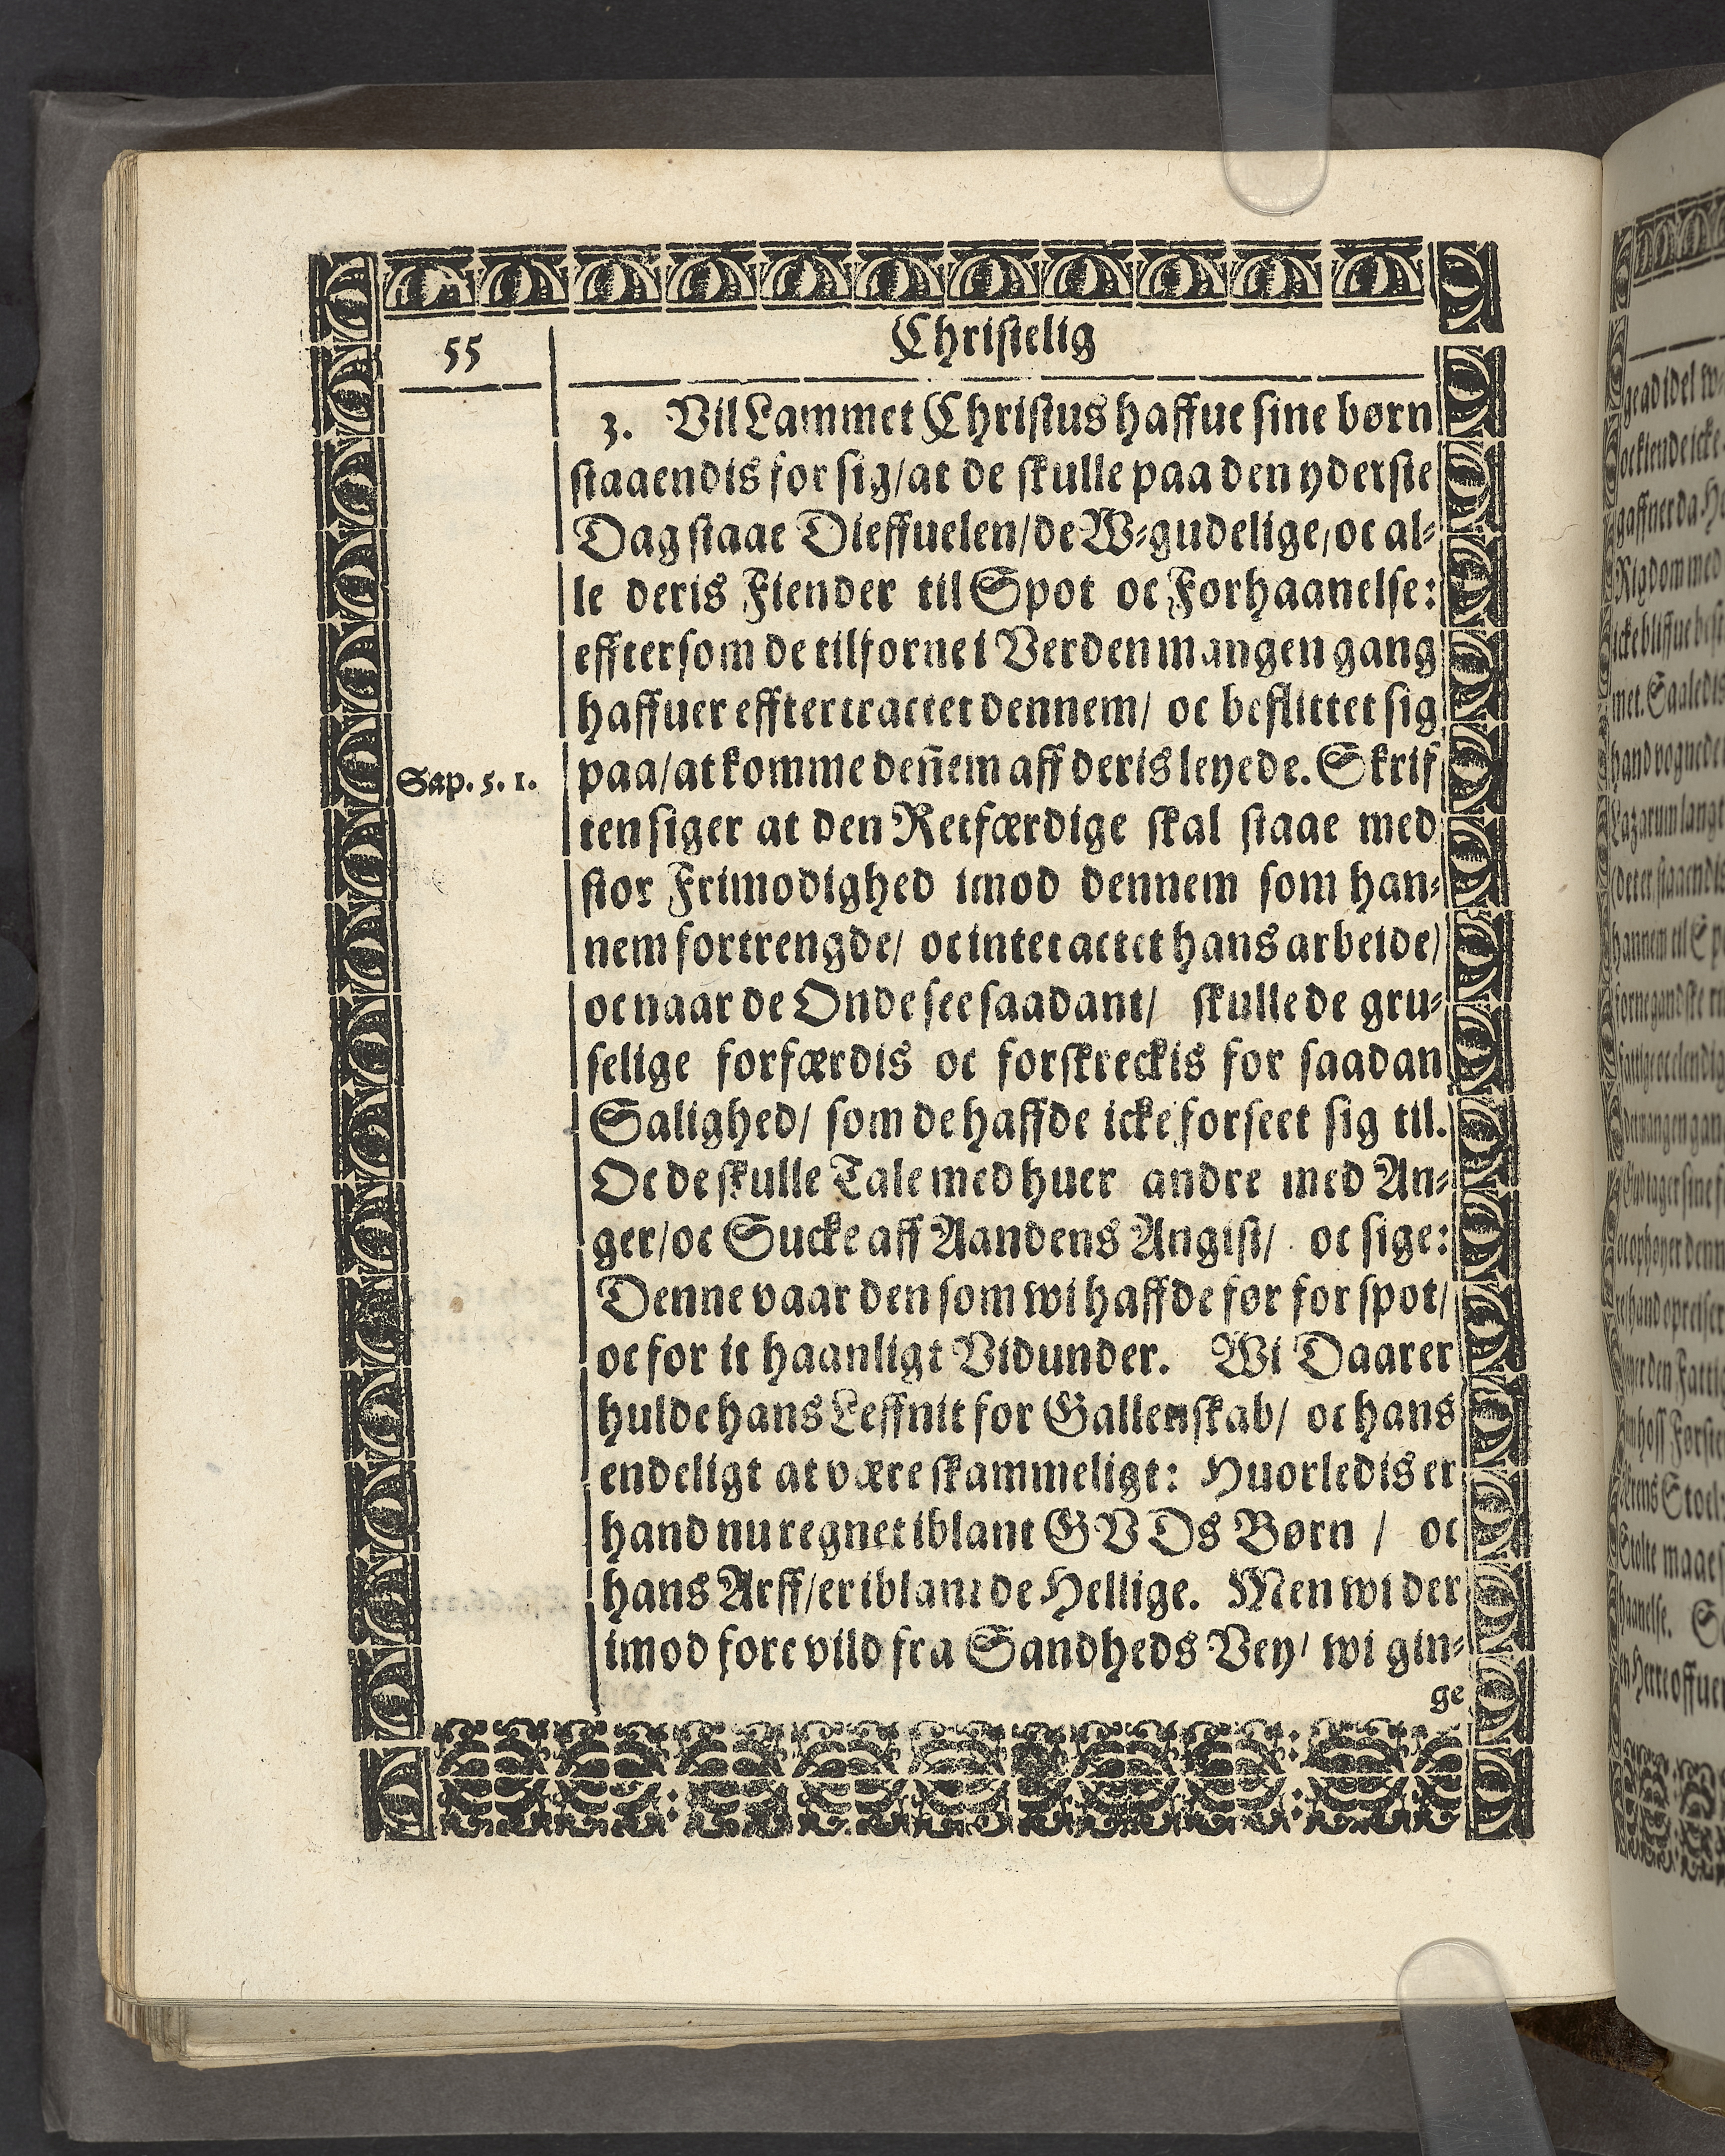 55
Christelig
3. Vil Lammet Christus haffue sine børn
staaendis for sig/at de skulle paa den yderste
Dag staae Dieffuelen/de W-gudelige/oc al-
le deris Fiender til Spot oc Forhaanelse:
efftersom de tilforne i Verden mangen gang
haffuer efftertractet dennem/ oc beflittet sig
Sap. 5. 1.
paa/at komme deñem aff deris leyede. Skrif
ten siger at den Retfærdige skal staae med
stor Frimodighed imod dennem som han-
nem fortrengde/ oc intet actet hans arbeide/
oc naar de Onde see saadant/ skulle de gru-
selige forfærdis oc forskreckis for saadan
Salighed/ som de haffde icke forseet sig til.
Oc de skulle Tale med huer andre med An-
ger/oc Sucke aff Aandens Angist/ oc sige:
Denne vaar den som wi haffde før for spot/
oc for it haanligt Vidunder. Wi Daarer
hulde hans Leffnit for Gallenskab/ oc hans
endeligt at være skammeligt: Huorledis er
hand nu regnet iblant GVDs Børn / oc
hans Arff/er iblant de Hellige. Men wi der
imod fore vild fra Sandheds Vey/ wi gin-
ge